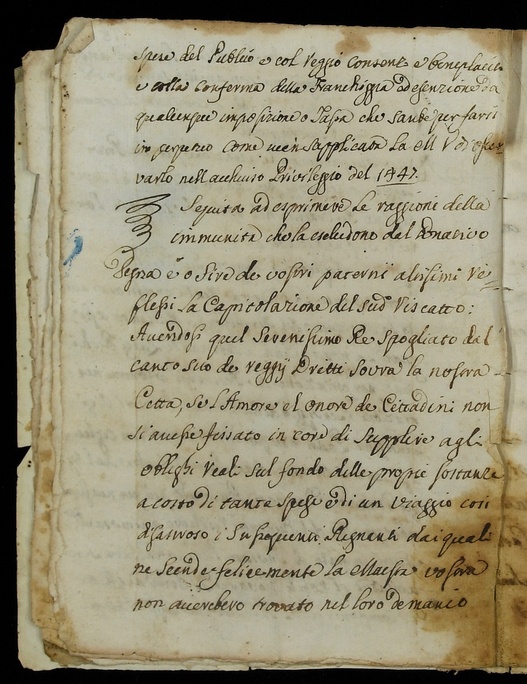 spese del Publico e col Reggio Consenso e beneplacito
e colla conferma della Franchiggia ed esenzione da
qualunque imposizione o Tassa che sarebbe per farsi
in perpetuo come vien supplicata la M V ad osser
varlo nell'acchiuso Privileggio del 1447.
Seguita ad esprimere le raggioni della
immunità che la escludono dal Donativo
Degna è o Sire de vostri paterni altissimi re=
flessi la Capitolazione del sud.o Riscatto:
Avendosi quel Serenissimo Re spogliato dal
canto suo de reggij Dritti sovra la nostra
Città, se l'Amore el onore de Cittadini non
si avesse fissato in core di supplire agli
obblighi reali sul fondo delle proprie sostanze
a costo di tante spese e di un viaggio così
disastroso i susseguenti Regnanti dai quali
ne scende felicemente la Maestà vostra
non averebero trovato nel loro demanio